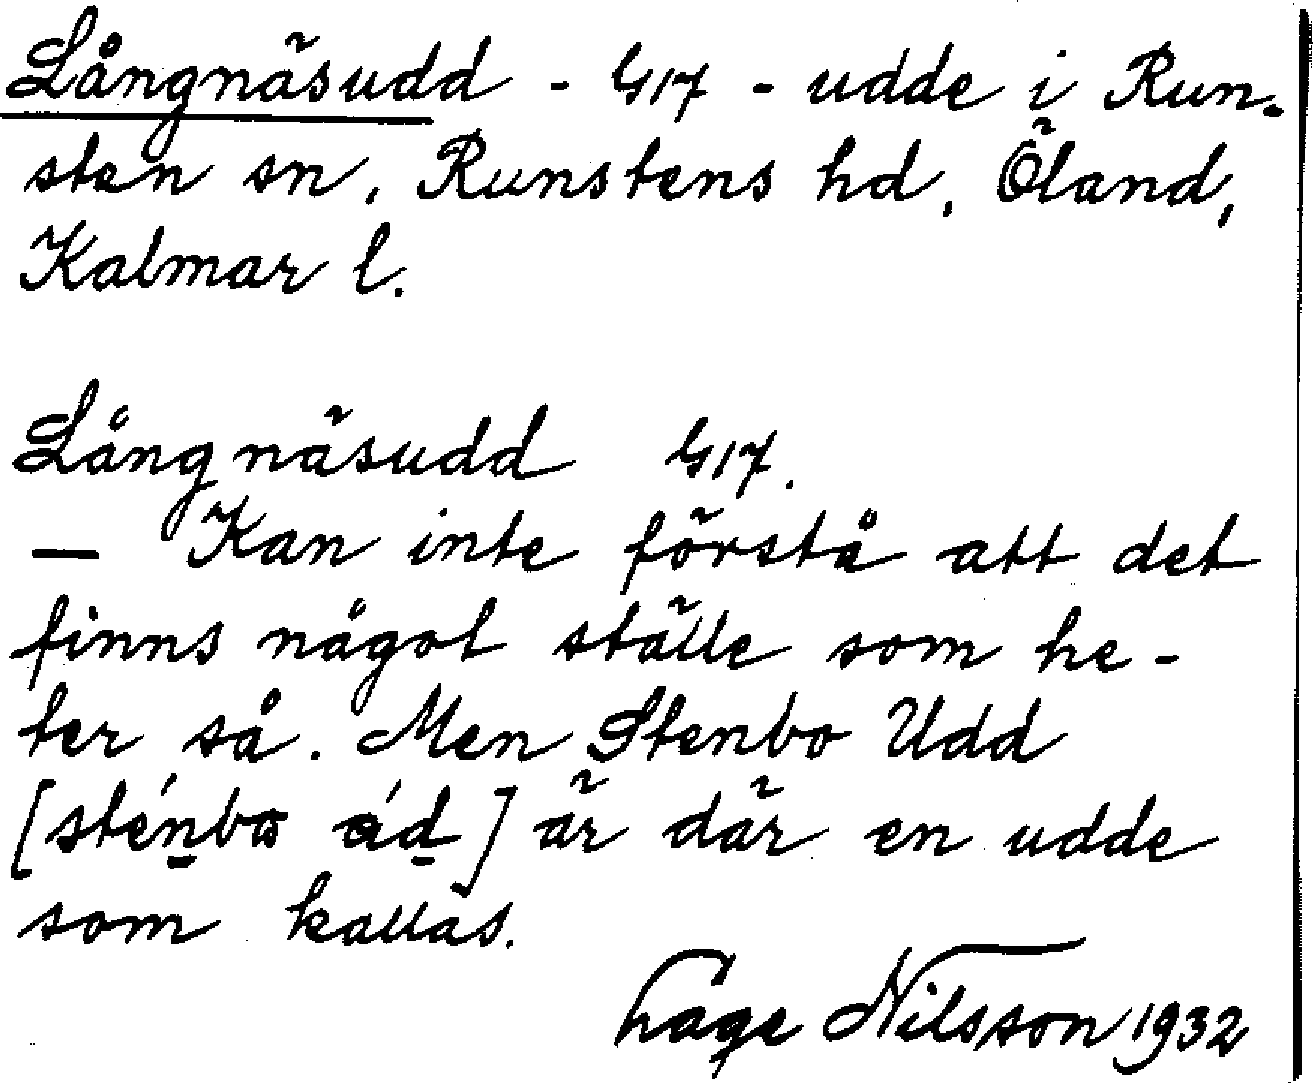 Långnäsudd - G17 - udde i Run-
sten sn, Runstens hd, Öland,
Kalmar l.
Långnäsudd G17.
— Kan inte förstå att det
finns något ställe som he-
ter så. Men Stenbo Udd
är där en udde
som kallas.
Hage Nilsson 1932